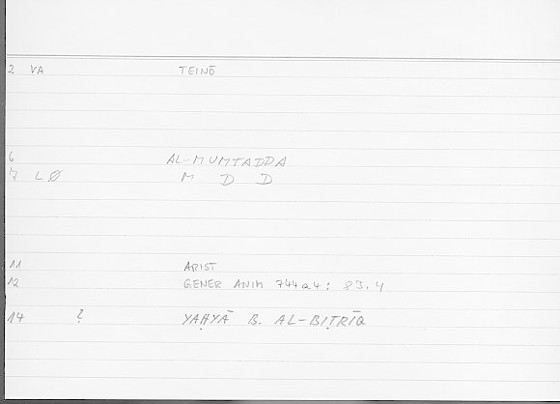 2 VA TEINŌ
6 AL-MUMTADDA
7 LØ M D D
11 ARIST
12 GENER ANIM 744a4: 83.4
14 ? YAḤYĀ B. AL-BIṬRĪQ